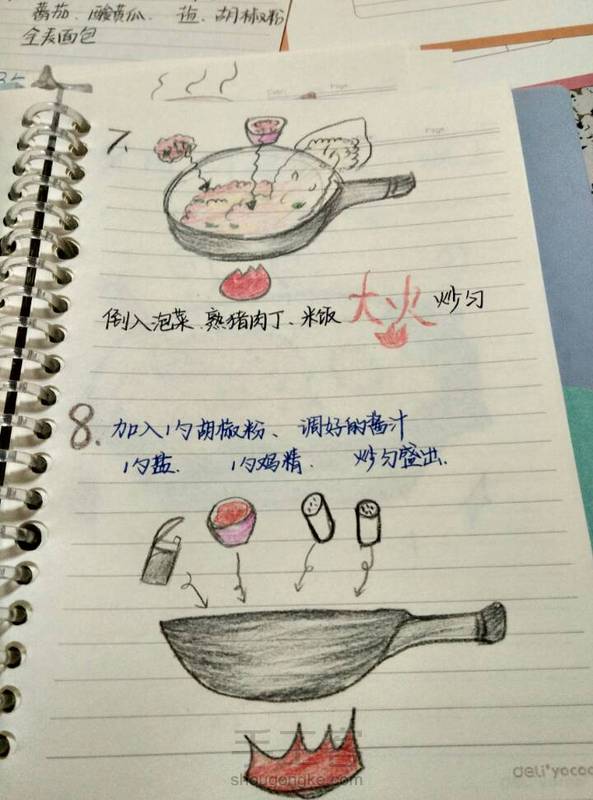 番茄、酸黄瓜、 盐、胡椒粉
全麦面包
7、
倒入泡菜、熟猪肉丁、米饭 大火 炒匀
8、加入1勺胡椒粉、调好的酱汁
1勺盐. 1勺鸡精. 炒匀盛出.
shougongke.com